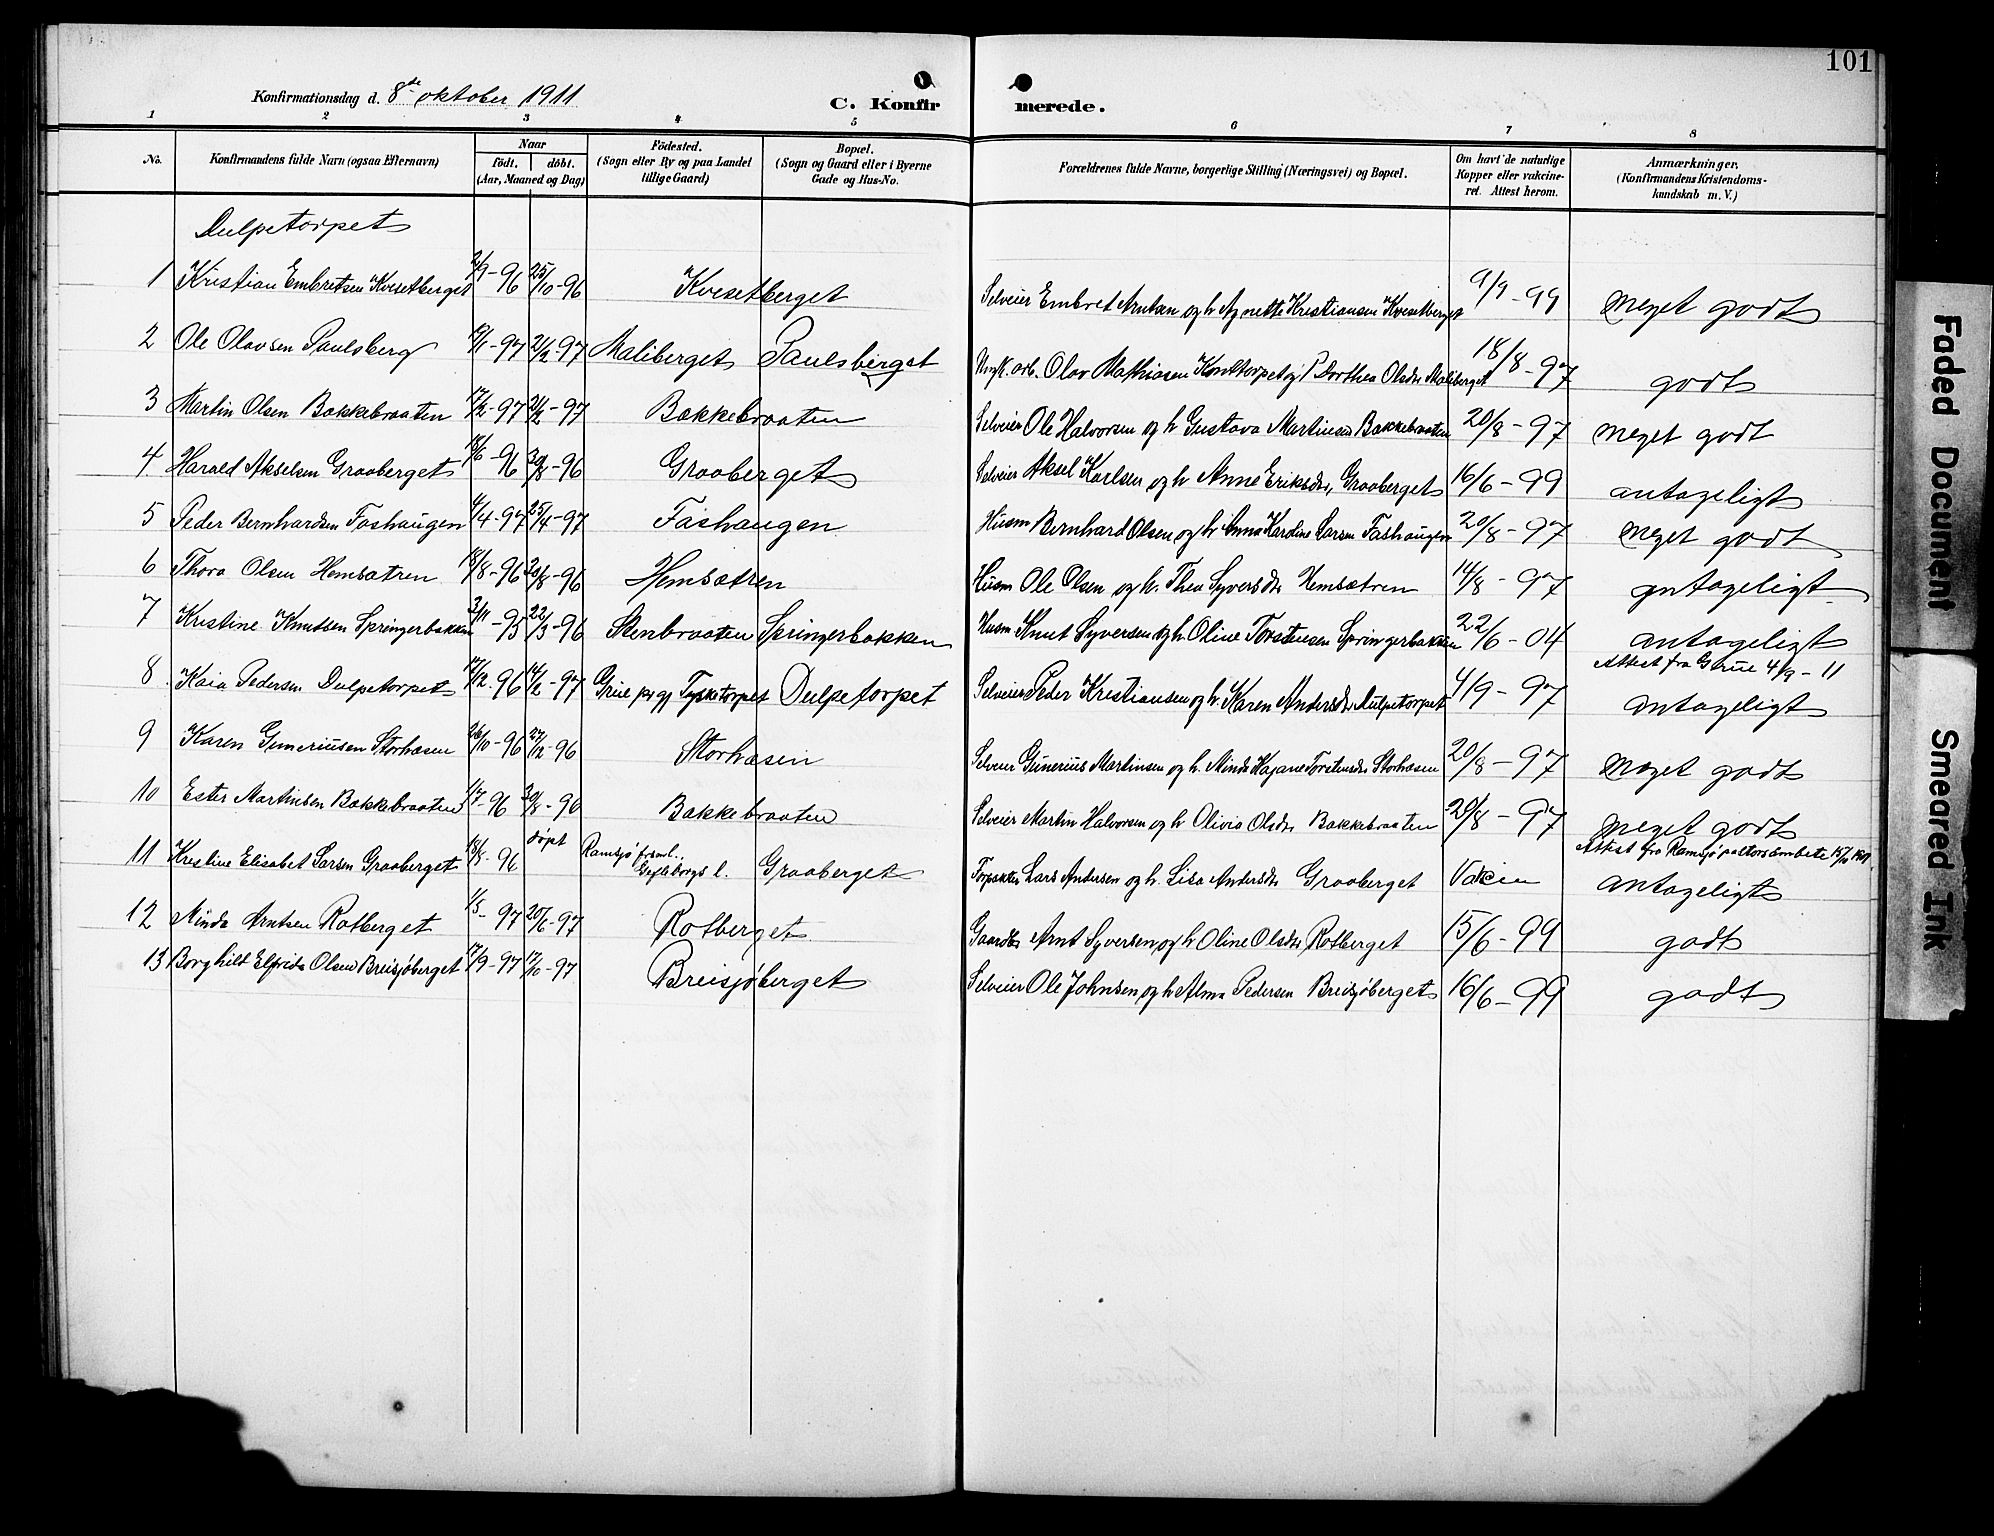 101
Konfirmationsdag d. 8de oktober 1911
C. Konfirmerede.
1 2 3 4 5 6 7 8
No. Konfirmandens fulde Navn (ogsaa Efternavn) Naar født. døbt. (Aar, Maaned og Dag) Fødested. (Sogn eller By og paa Landet tillige Gaard) Bopæl. (Sogn og Gaard eller i Byerne Gade og Hus-No. Forældrenes fulde Navne, borgerlige Stilling (Næringsvei) og Bopæl. Om havt de naturlige Kopper eller vakcineret. Attest herom. Anmærkninger. (Konfirmandens Kristendomskundskab m. V.)
Dulpetorpet
1 Kristian Embretsen Kvesetberget 2/9-96 25/10-96 Kvesetberget Selveier Embret Arntsen og h. Agnette Kristiansen Kvesetberget 9/9-99 meget godt
2 Ole Olavsen Paulsberg 19/1-97 21/2-97 Maliberget Paulsberget Olav Mathiasen og Dorthea Olsdr Maliberget 18/8-97 godt
3 Martin Olsen Bakkebraaten 17/2-97 21/2-97 Bakkebraaten Selveier Ole Halvorsen og h Gustava Martinsen Bakkebraaten 20/8-97 meget godt
4. Harald Akselsen Graaberget 18/6-96 30/8-96 Graaberget Selveier Aksel Karlsen og h Anne Eriksdr, Graaberget 16/6-99 antageligt
5 Peder Bernhardsen Fashaugen 4/4-97 25/4-97 Fashaugen Husm Bernhard Olsen og h Anna Kardine Larsen Fashaugen 20/8-97 meget godt
6 Thora Olsen Hemsætren 18/8-96 30/8-96 Hemsætren Husm Ole Olsen og h. Thea Syversdr Hemsætren 14/8-97 antageligt
7 Kristine Knutsen Springerbakken 3/11-95 22/3-96 Stenbraaten Springerbakken Husm Knut Syversen og h Oline Torstensen Springerbakken 22/6-04 antageligt
Attest fra Grue 4/9-11
8 Kaia Pedersen Dulpetorpet 17/12-96 14/2-97 Grue pgj Tysketorpet Dulpetorpet Selveier Peder Kristiansen og h. Karen Andersdr Dulpetorpet 4/9-97 antageligt
9 Karen Guneriusen Storhæsen 26/10-96 27/12-96 Storhæsen Selveier Gunerius Martinsen og h. Minda Kajane Torstensdr Storhæsen 20/8-97 meget godt
10 Ester Martinsen Bakkebraaten 1/7-96 30/8-96 Bakkebraaten Selveier Martin Halvorsen og h Olivia Olsdr Bakkebraaten 20/8-97 meget godt
Attest fra Ramsjø pastorsembete 15/7 1911
11 Kristine Elisabet Larsen Graaberget 18/8-96 døpt Ramsjø forsml., Gefleborgs l. Graaberget Lars Andersen og h. Lisa Andersdr Graaberget Vakcin antageligt
12 Minda Arntsen Rotberget 1/5-97 20/6-97 Rotberget Gaardbr Arnt Syversen og h Oline Olsdr Rotberget 15/6-99 godt
13 Borghild Elfrida Olsen Breisjøberget 17/9-97 17/10-97 Breisjøberget Selveier Ole Johnsen og h Alma Pedersen Breisjøberget 16/6-99 godt
Faded Document
Smeared Ink